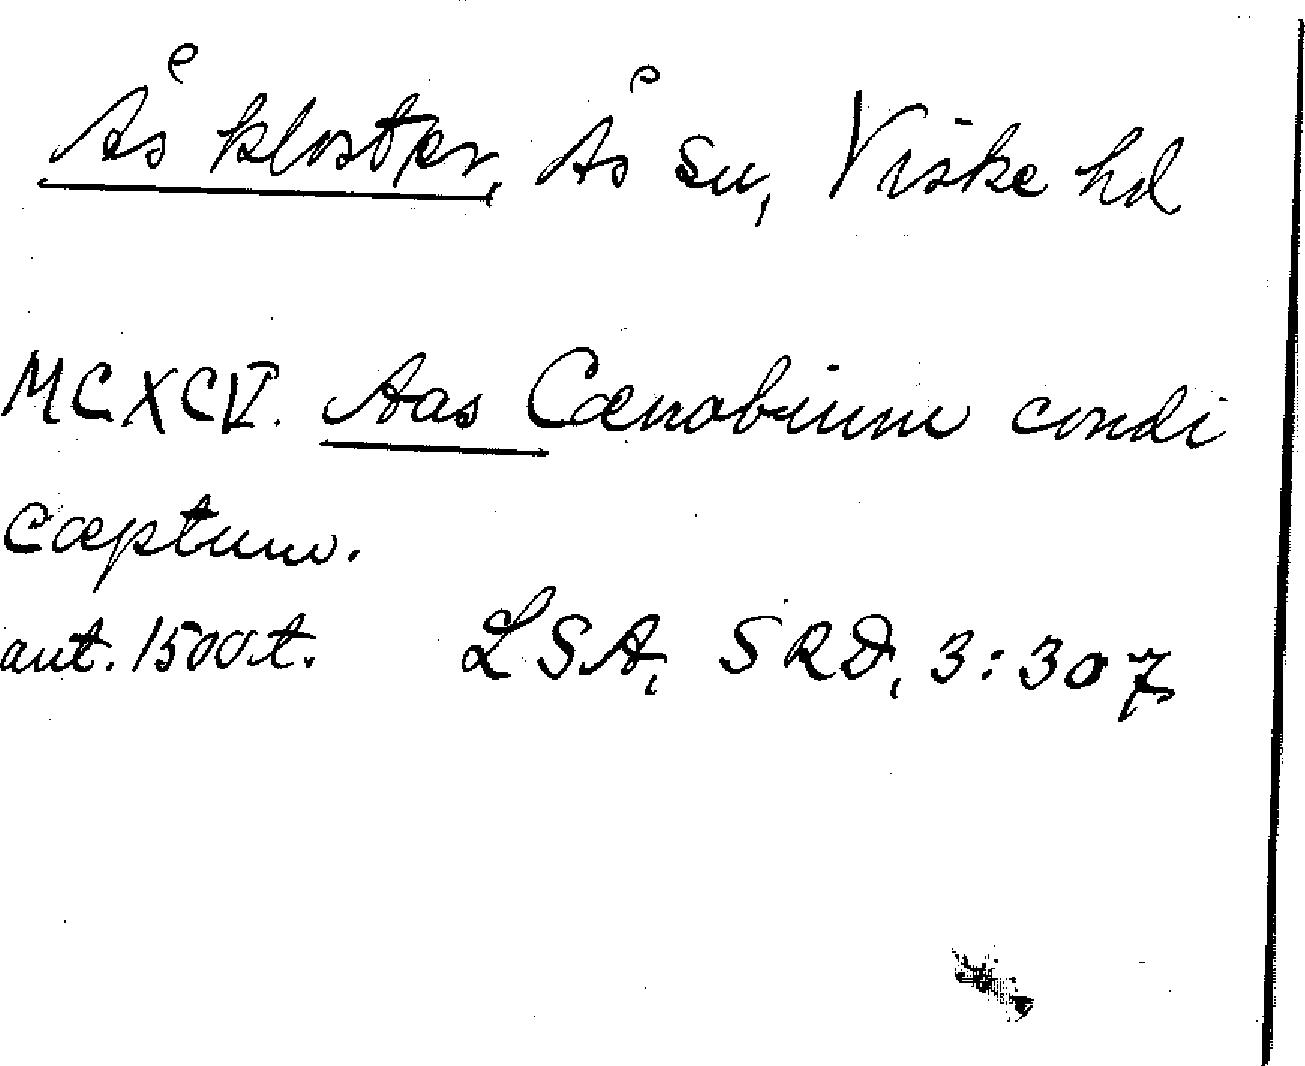 Ås kloster, Ås sn, Viske hd
MCXCV. Aas Cænobium condi
cæptum.
ant. 1500t. LSA, SRD, 3:307